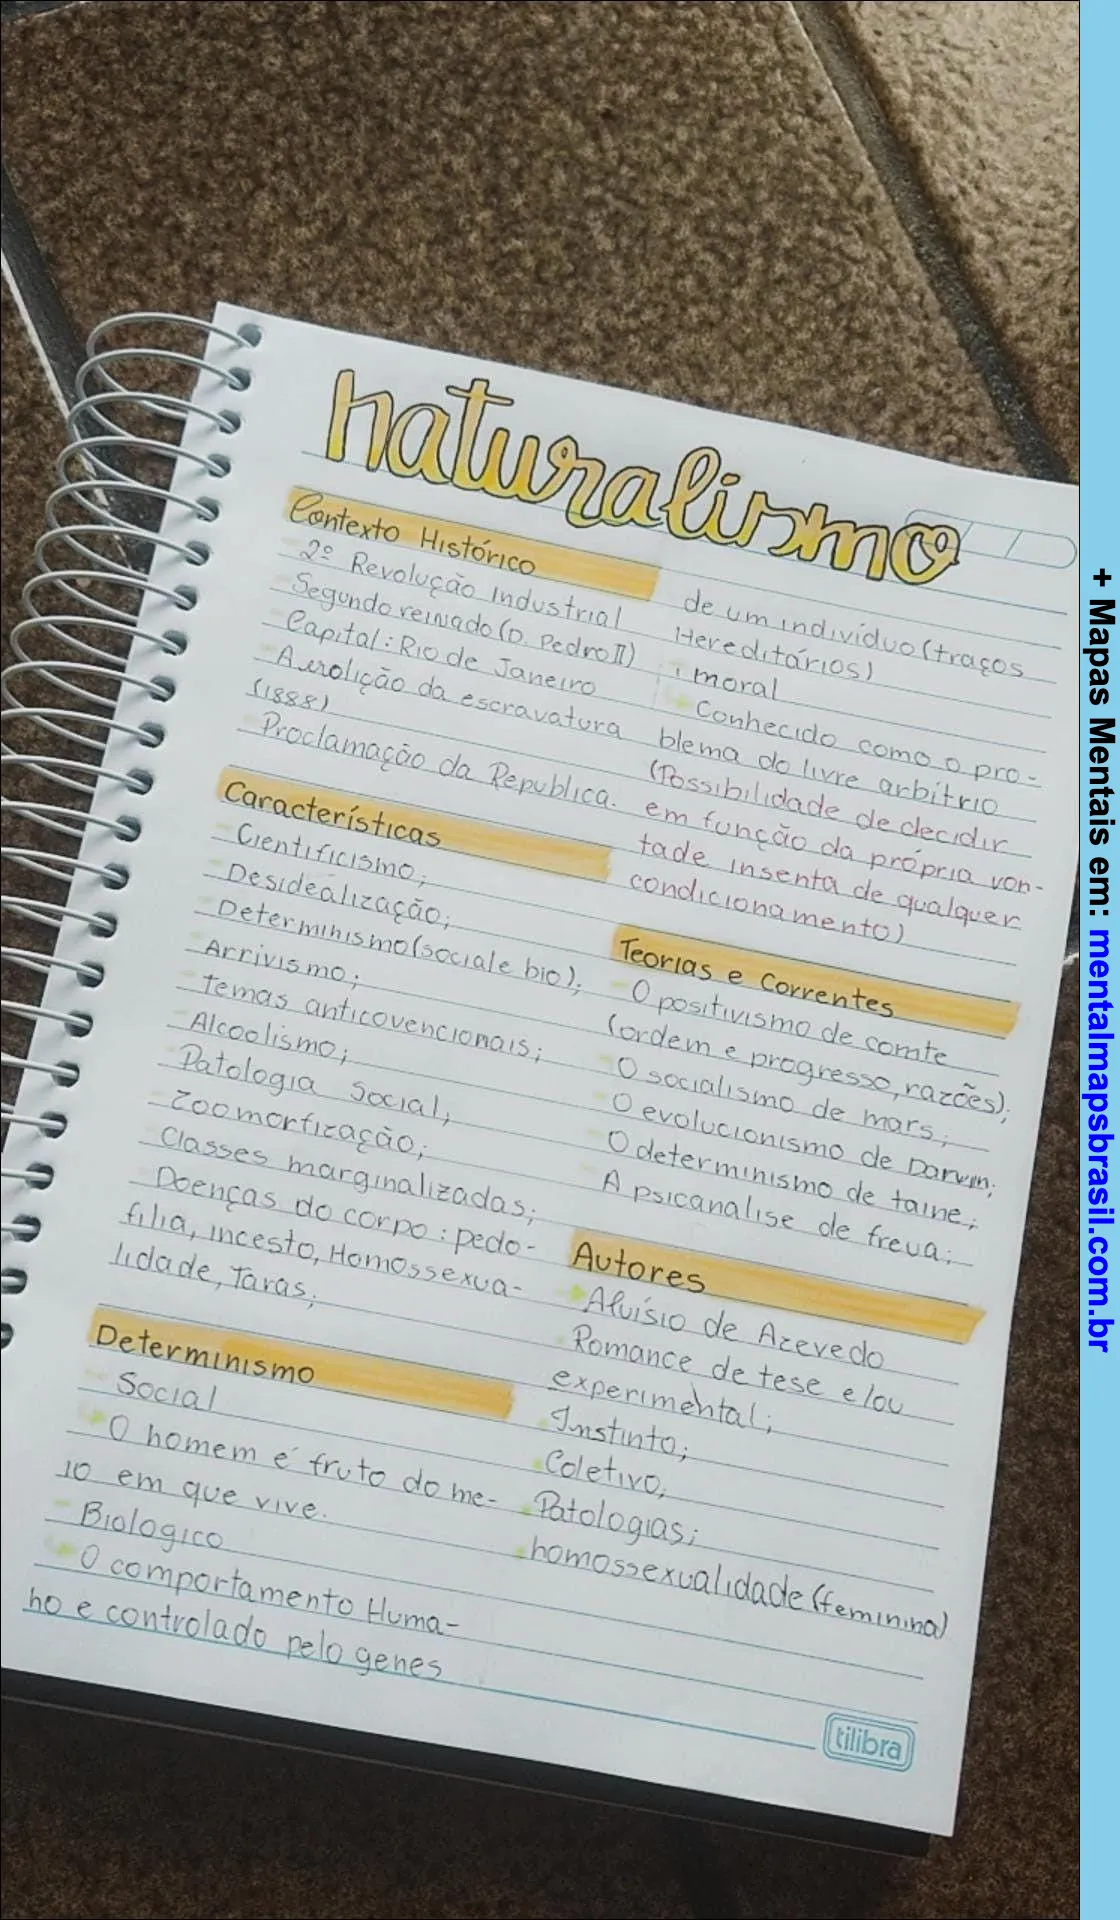 naturalismo
Contexto Histórico
2º Revolução Industrial
Segundo reinado (D. Pedro II)
Capital: Rio de Janeiro
da escravatura
(1888)
Proclamação da Republica.
Características
Cientificismo;
Desidealização;
Determinismo (social e bio);
Arrivismo;
temas anticovencionais;
Alcoolismo;
Patologia Social;
Zoomorfização;
Classes marginalizadas;
Doenças do corpo: pedo-
filia, incesto, Homossexua-
lidade, Taras;
Determinismo
Social
O homem é fruto do me-
io em que vive.
Biologico
O comportamento Huma-
no e controlado pelo genes
de um indivíduo (traços
Hereditários)
moral
Conhecido como o pro-
blema do livre arbítrio
(Possibilidade de decidir
em função da própria von-
tade insenta de qualquer
condicionamento)
Teorias e Correntes
O positivismo de comte
(ordem e progresso, razões);
O socialismo de mars;
O evolucionismo de Darwin;
O determinismo de taine;
A psicanalise de
Autores
Aluísio de Azevedo
Romance de tese e/ou
experimental;
Instinto;
Coletivo;
Patologias;
homossexualidade (feminina)
tilibra
+ Mapas Mentais em: mentalmapsbrasil.com.br